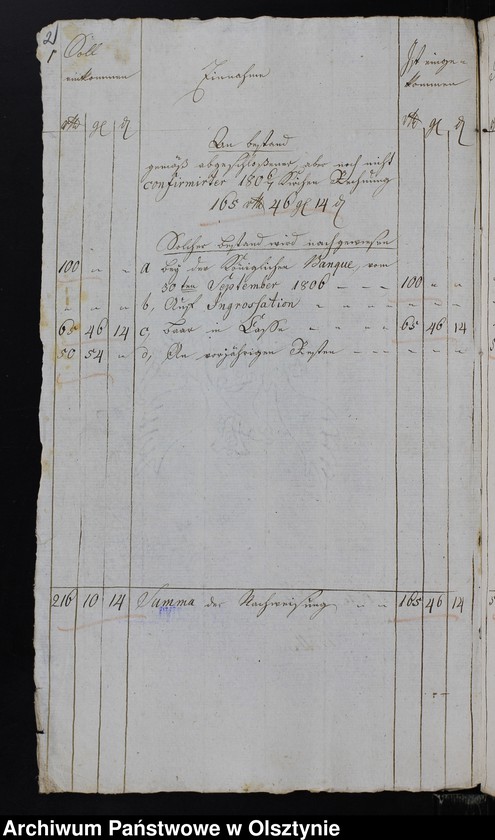 2
Soll
einkommen
Einnahme
Ist einge-
kommen
rth gl d
rth gl d
An bestand
gemäß abgeschloßener, aber noch nicht
confirmirter 1806/7 Kirchen Rechnung
165 rth 46 gl 14 d
Solcher bestand wird nachgewiesen
100 " " a bey der Königlichen Banque, vom
30ten September 1806 - - - 100 " "
" " " b, Auf Ingrossation " " " " " "
65 46 14 c, baar in Casse " " " " 65 46 14
50 54 " d, An vorjährigen Resten - - - " " "
216 10 14 Summa der Nachweisung " " 165 46 14
Archiwum Państwowe w Olsztynie